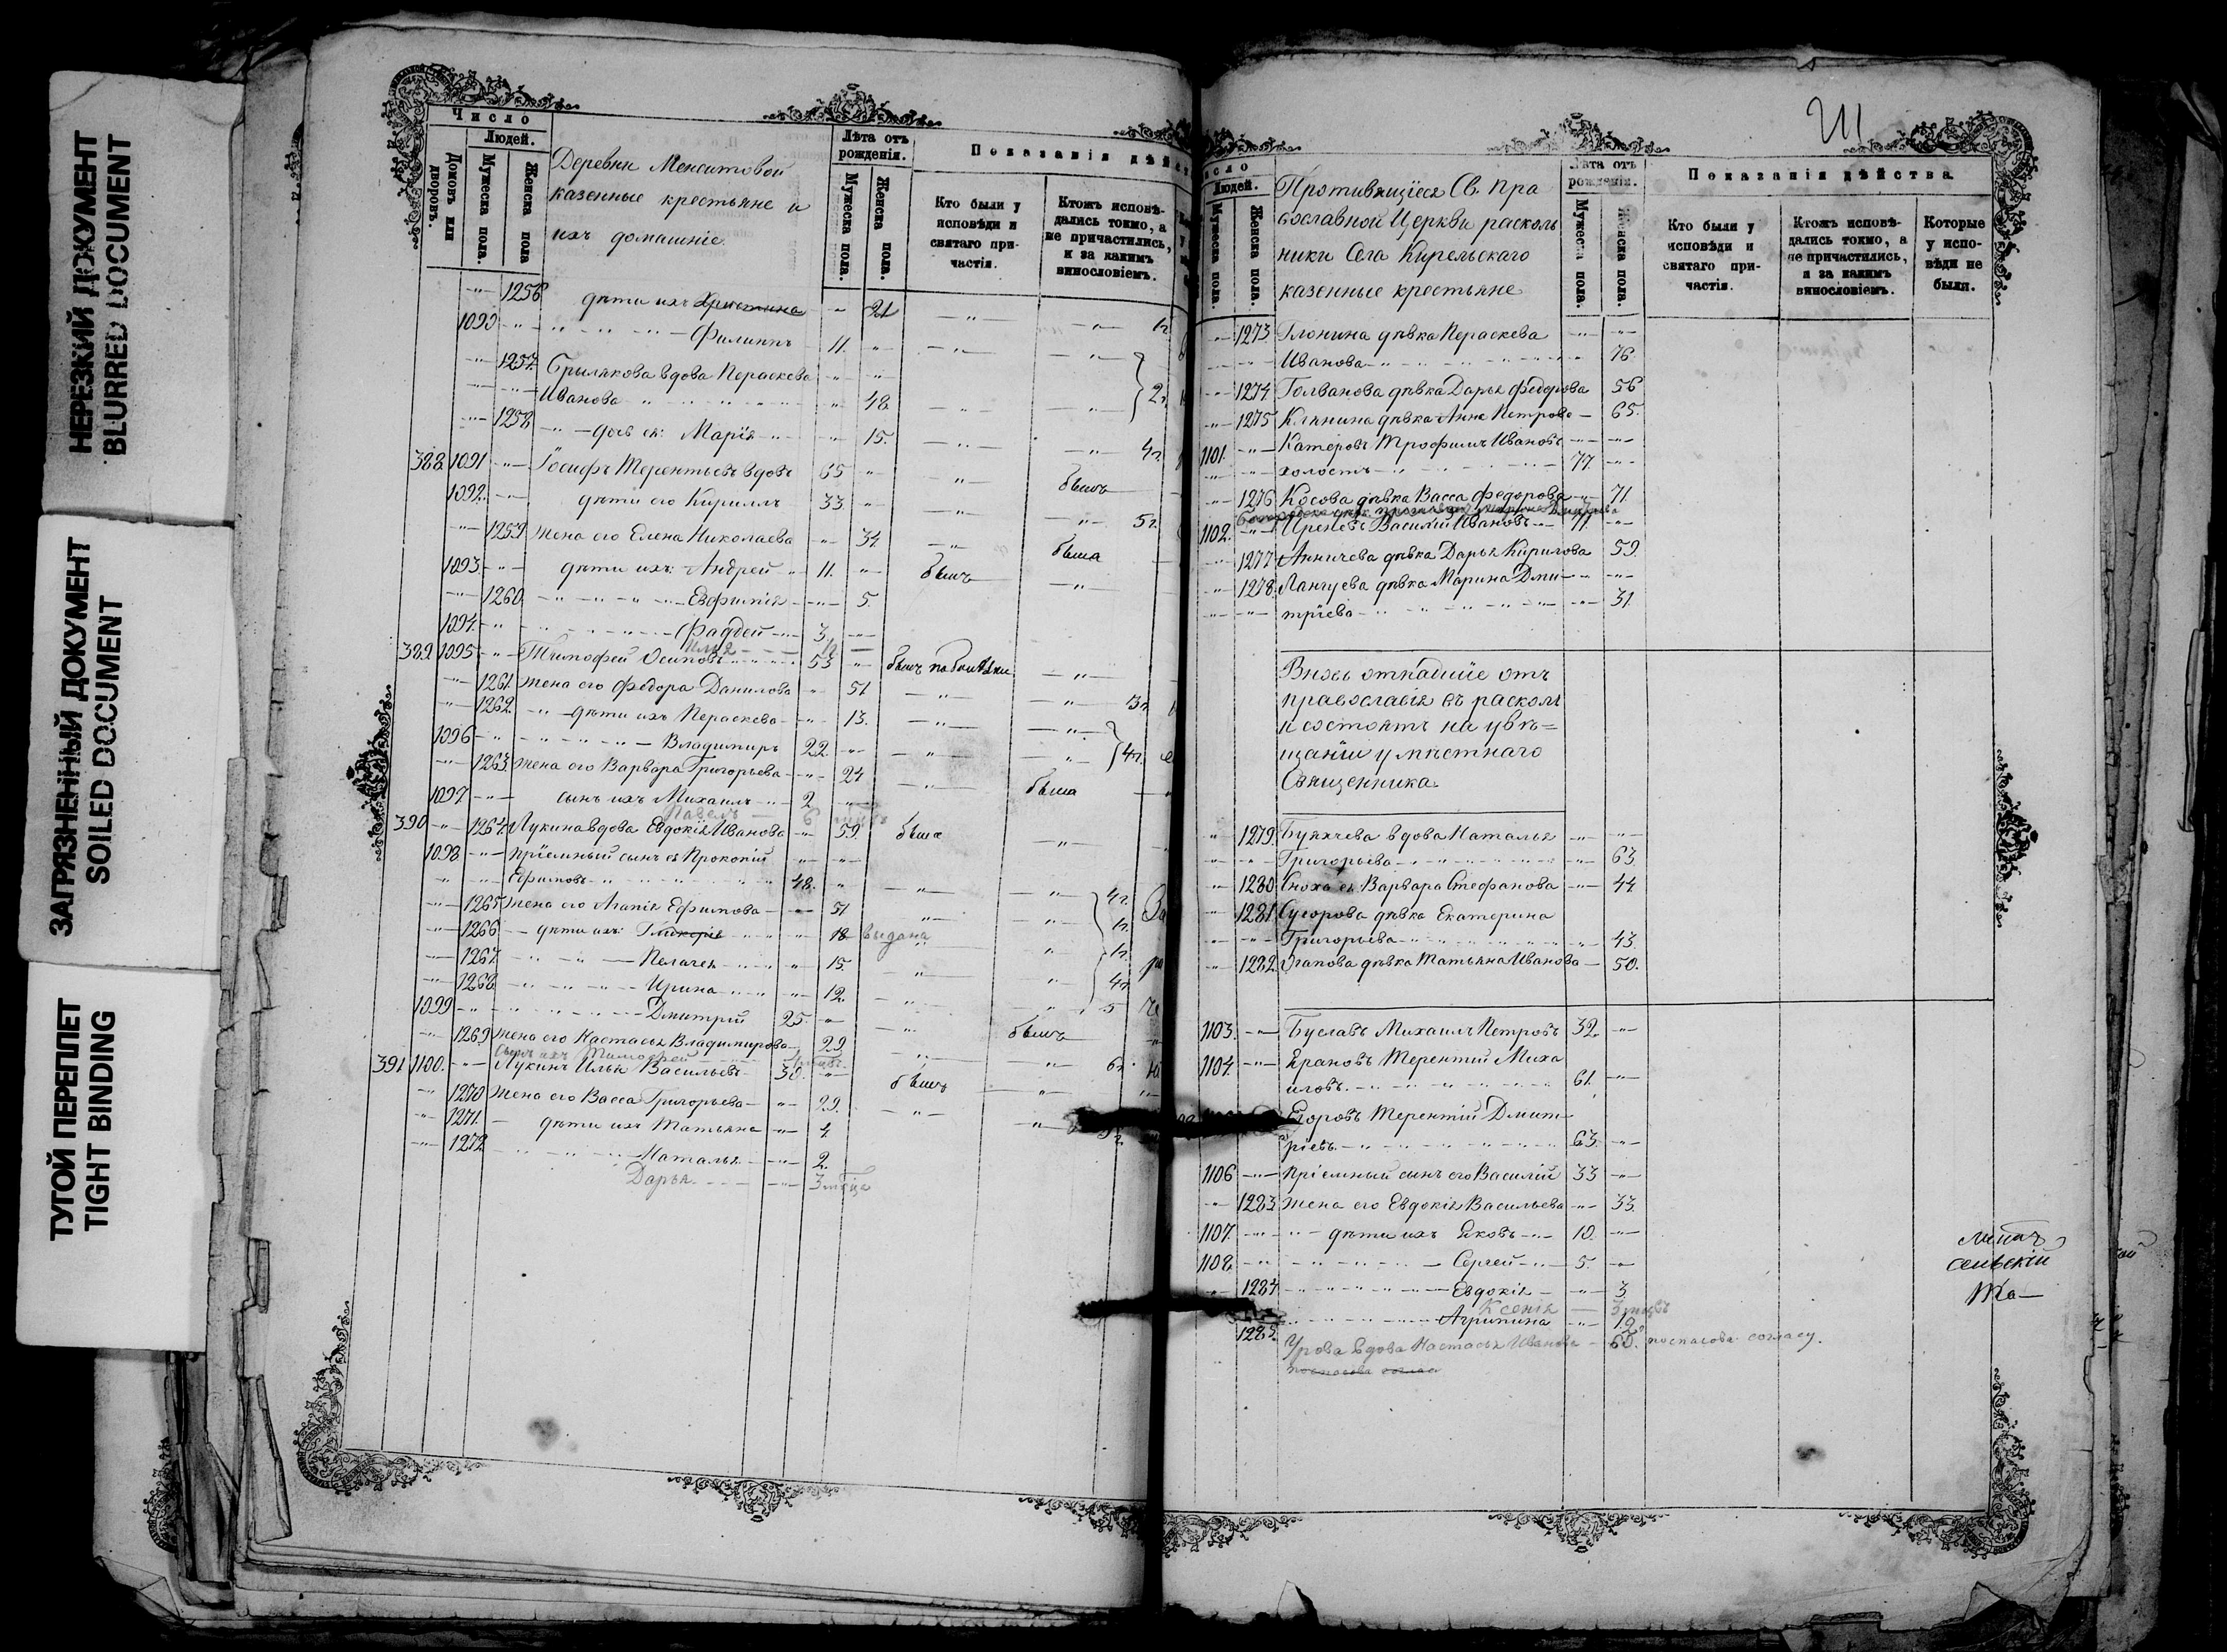 НЕРЕЗКИЙ ДОКУМЕНТ
BLURRED DOCUMENT
ЗАГРЯЗНЕННЫЙ ДОКУМЕНТ
SOILED DOCUMENT
ТУГОЙ ПЕРЕПЛЕТ
TIGHT BINDING
Число
Людей.
Домовъ или дворовъ.
Мужеска пола.
Женска пола
Деревни Менситовой
казенные крестьяне и
ихъ домашніе
Лѣта отъ рожденія.
Мужеска пола.
Женска пола.
Показанія дѣйст
Кто были у исповѣди и святаго причастія.
Ктожъ исповѣдались токмо, а не причастились, и за какимъ винословіемъ.
1256 дѣти ихъ Христина 21
1090 Филиппъ 11.
1257. Брылякова вдова Пераскева
Иванова 48 2г.
1258 дочь ея: Марія 15. 4г.
388. 1091 Іосифъ Терентьевъ вдовъ 65 бывъ
1092. дѣти его Кириллъ 33. 5г.
1259 жена его Елена Николаева 34. была
1093. дѣти ихъ: Андрей 11. бывъ
1260 Евфимія 5.
1094. Фаддей 3.
Илья
389 1095 Тимофей Осиповъ 53
1261. жена его Федора Данилова 51 3г.
1262. дѣти ихъ Пераскева 13.
1096 Владимиръ 22. 4г.
1263. жена его Варвара Григорьева 24 была
1097 сынъ ихъ Михаилъ 2
Павелъ 6
390 1264. Лукина вдова Евдокія Иванова 59. была
1098. пріемный сынъ ея Прокопій
Ефимовъ 48. 4г.
1265. жена его Агапія Ефимова 51
1266 дѣти ихъ: Гликерія 18 выдана
1267. Пелагея 15.
1268 Ирина 12. 4г.
1099 Дмитрій 25. бывъ
1269 жена его Настасья Владимирова 29
сынъ ихъ Тимофей
391 1100. Лукинъ Илья Васильевъ 30. бывъ
1270 жена его Васса Григорьева 29.
1271. дѣти ихъ Татьяна 4
1272 Наталья 2.
Дарья 3
Людей.
Мужеска пола.
Женска пола.
Противящіеся Св. Пра
вославной Церкви расколь
ники Села Кирельскаго
казенные крестьяне
Лѣта отъ рожденія.
Мужеска пола.
Женска пола.
Показанія дѣйства.
Кто были у исповѣди и святаго причастія.
Ктожъ исповѣдались токмо, а не причастились, и за какимъ винословіемъ.
Которые у исповѣди не были.
1273 Глонина дѣвка Пераскева
Иванова 76.
1274 Голванова дѣвка Дарья Федорова 56
1275 Клянина дѣвка Анна Петрова 65.
1101. Катеровъ Трофимъ Ивановъ
холостъ 77.
1276 Косова дѣвка Васса Федорова 71.
1102. Василій Ивановъ
1277 Анничева дѣвка Дарья Кирилова 59.
1278. Лангуева дѣвка Марина Дми
тріева 31.
Вновь отпадшіе отъ
православія въ расколъ
и состоятъ на увѣ=
щаніи у мѣстнаго
Священника.
1279. Буяхчева вдова Наталья
Григорьева 63.
1280 Сноха ея Варвара Стефанова 44.
1281 Сугорова дѣвка Екатерина
Григорьева 43.
1282. Агапова дѣвка Татьяна Иванова 50.
1103. Буславъ Михаилъ Петровъ 32.
1104. Ерановъ Терентій Миха
иловъ 61.
Егоровъ Терентій Дмит
ріевъ 63.
1106 Пріемный сынъ его Василій 33
1283. жена его Евдокія Васильева 33.
1107. дѣти ихъ Яковъ 10.
1108. Сергей 5.
1284 Евдокія 3
Ксенія 3
1285. Агрипина 12.
Урова вдова Настасья Иванова 60. поспасова согласу.